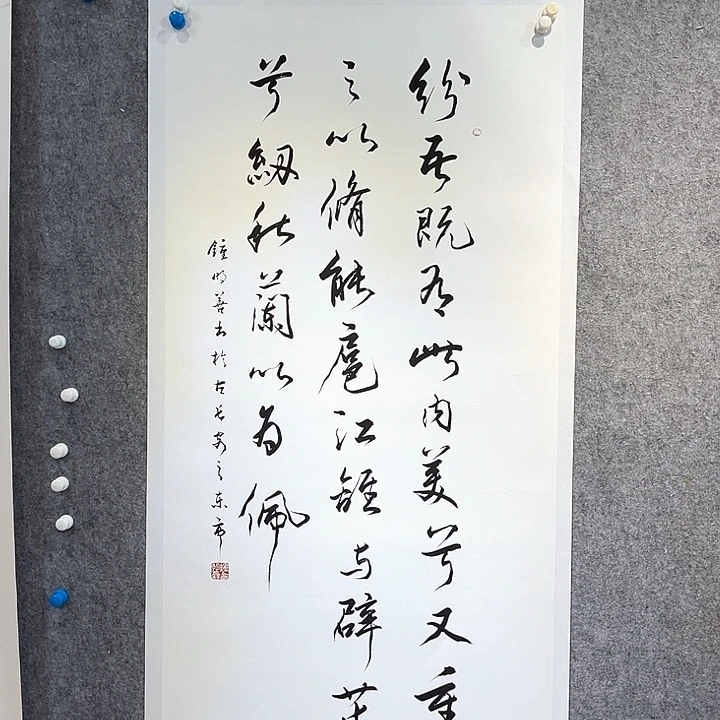 纷吾既有此内美兮又重
之以脩能扈江離与辟芷
兮纫秋蘭以为佩
鍾明善书於古长安之东市